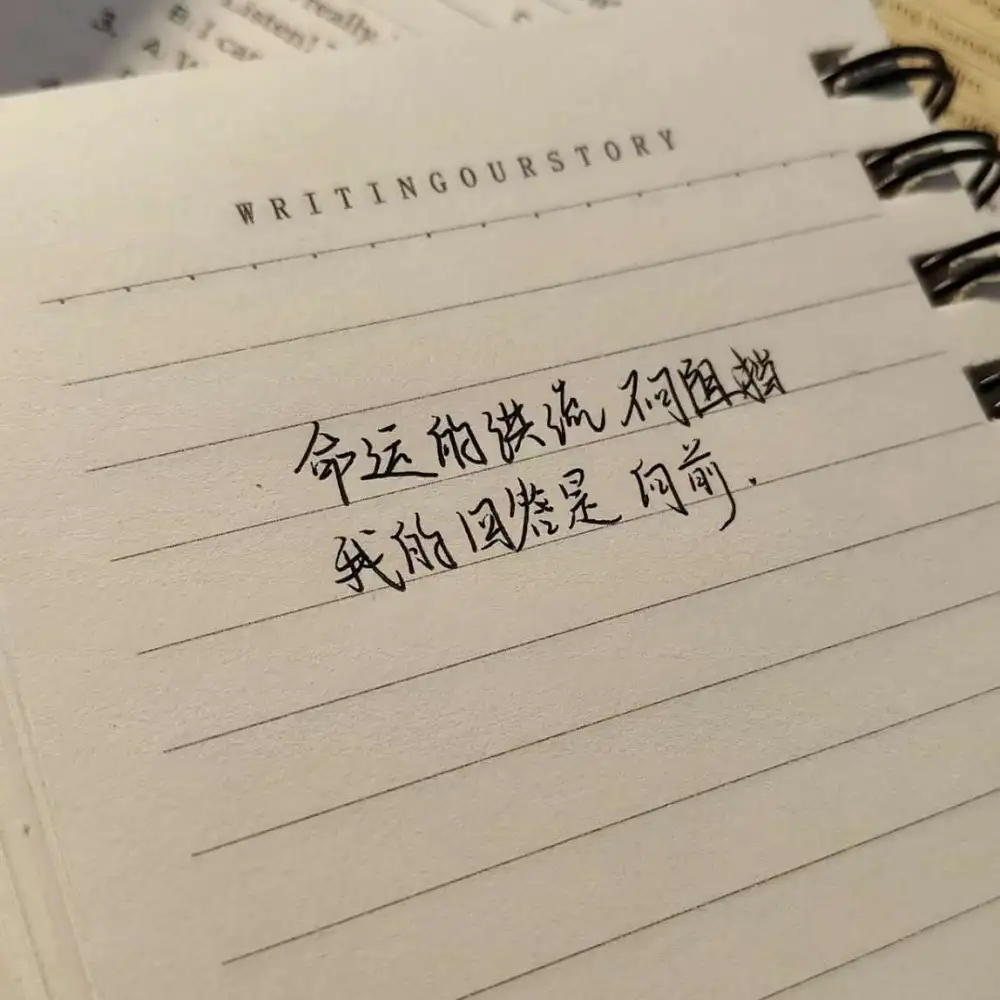 really
Listen!
B. I can
3. A
WRITINGOURSTORY
命运的洪流 不问阻挡
我的回答是 向前.